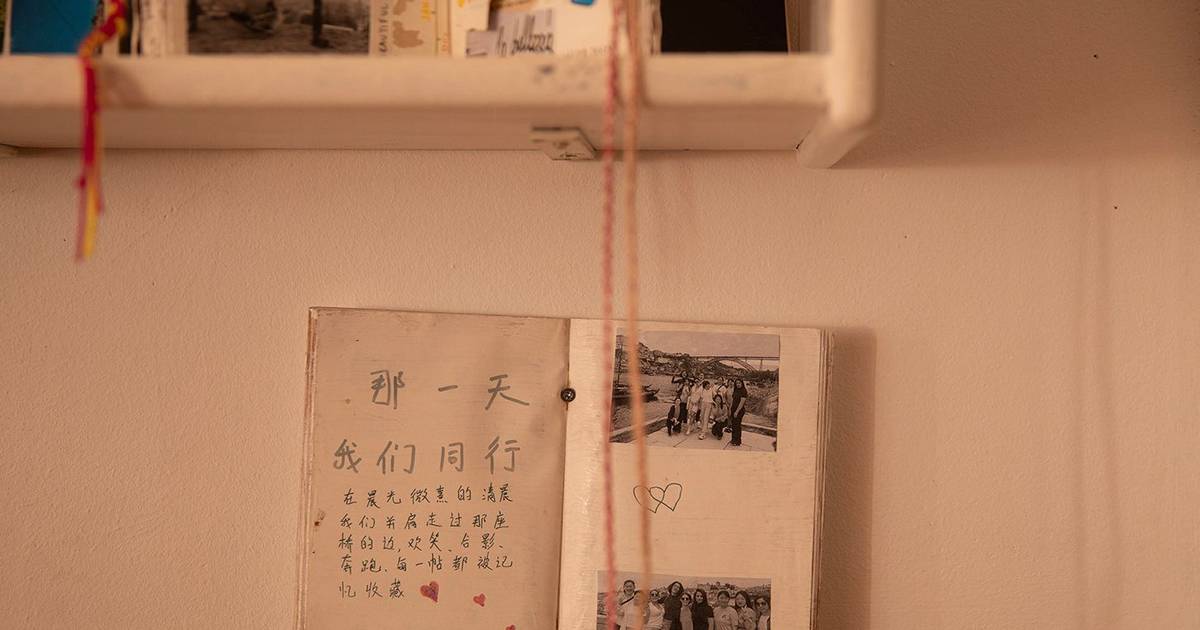 那一天
我们同行
在晨光微熹的清晨
我们并肩走过那座
桥的边,欢笑、合影、
奔跑、每一帖都被记
忆收藏